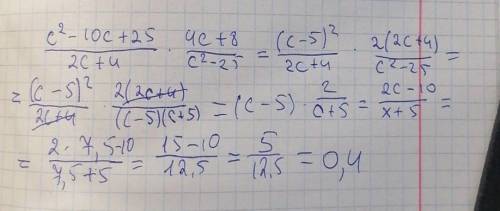 (c²-10c+25)/(2c+4) · (4c+8)/(c²-25) = (c-5)²/(2c+4) · 2(2c+4)/(c²-25) =
= (c-5)²/(2c+4) · 2(2c+4)/((c-5)(c+5)) = (c-5) · 2/(c+5) = (2c-10)/(x+5) =
= (2·7,5-10)/(7,5+5) = (15-10)/12,5 = 5/12,5 = 0,4